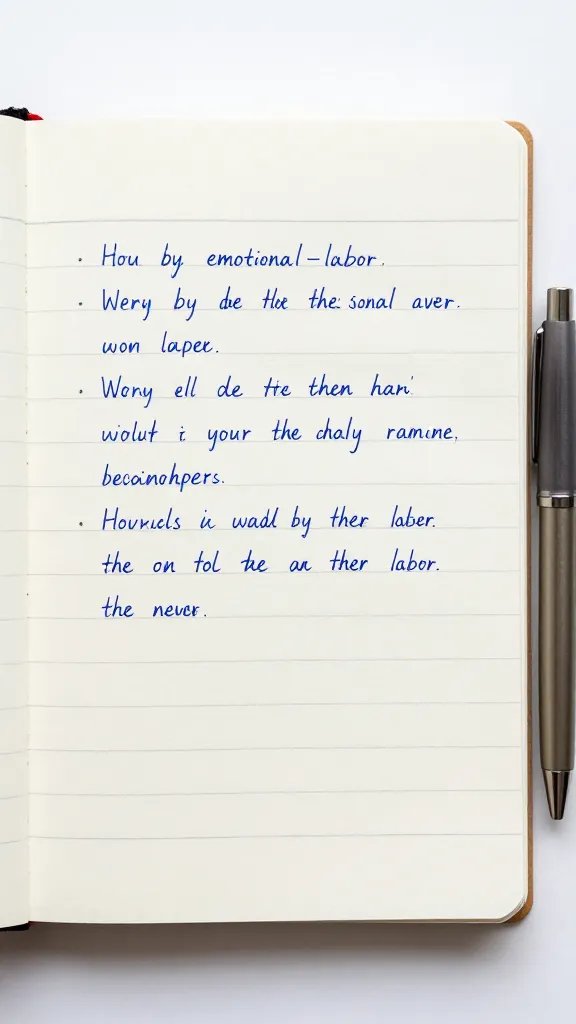 · Hou by emotional-labor.
· Wery by de the the: sonal aver.
won laper.
· Wony ell de tre then han'
wolut i your the chaly ramine,
becainohpers.
· Houncls is wadl by ther laber.
the on tol the an ther labor.
the never.